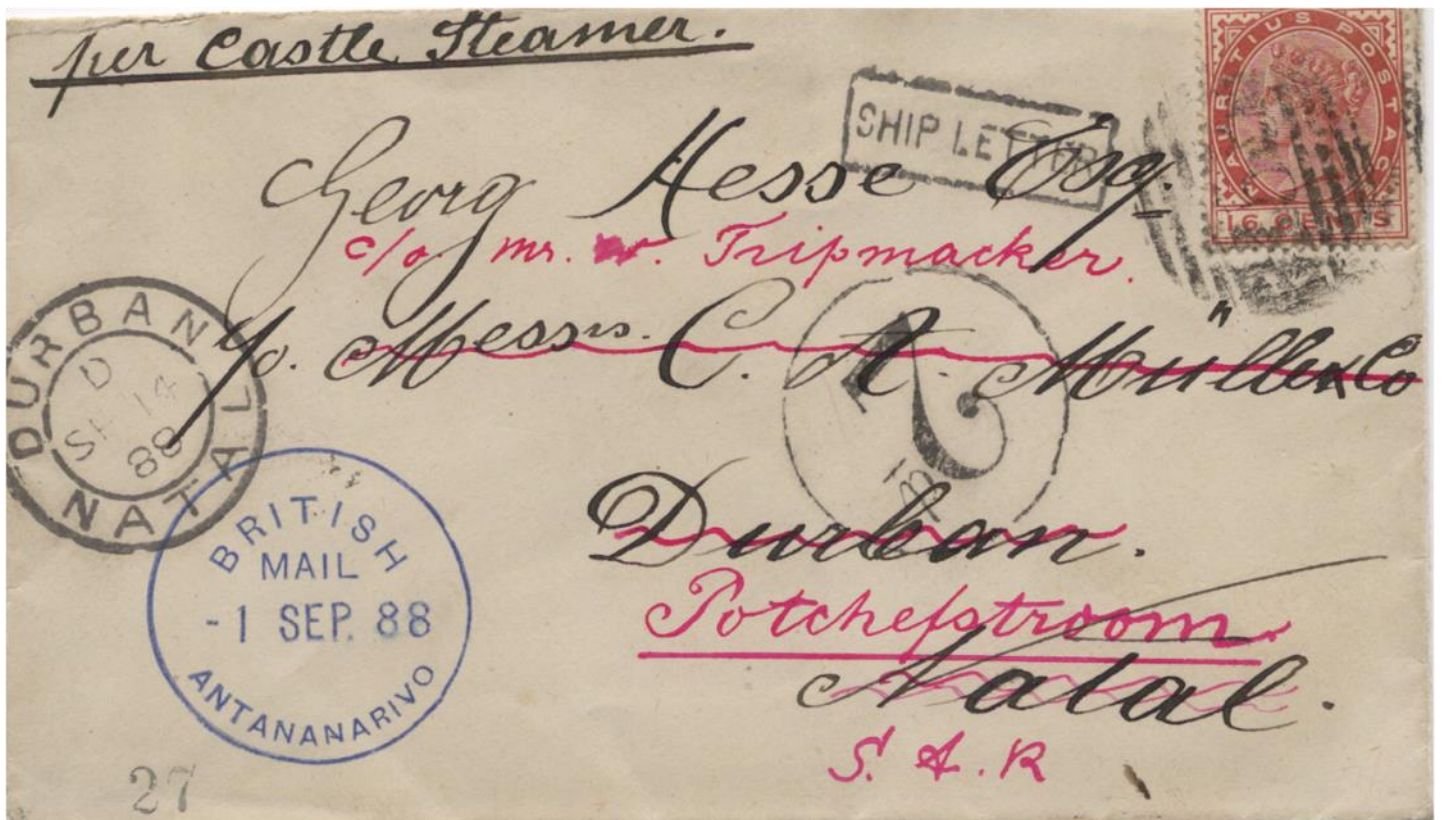 per Castle Steamer.
MAURITIUS POSTAGE
16 CENTS
SHIP LETTER
Georg Hesse Esq.
c/o. mr. w. Tripmacker.
c/o. Messrs. C. A. Müller & Co
DURBAN
D
SP 14
88
NATAL
2
Durban.
Potchefstroom.
Natal.
S. A. R
BRITISH
MAIL
- 1 SEP. 88
ANTANANARIVO
27